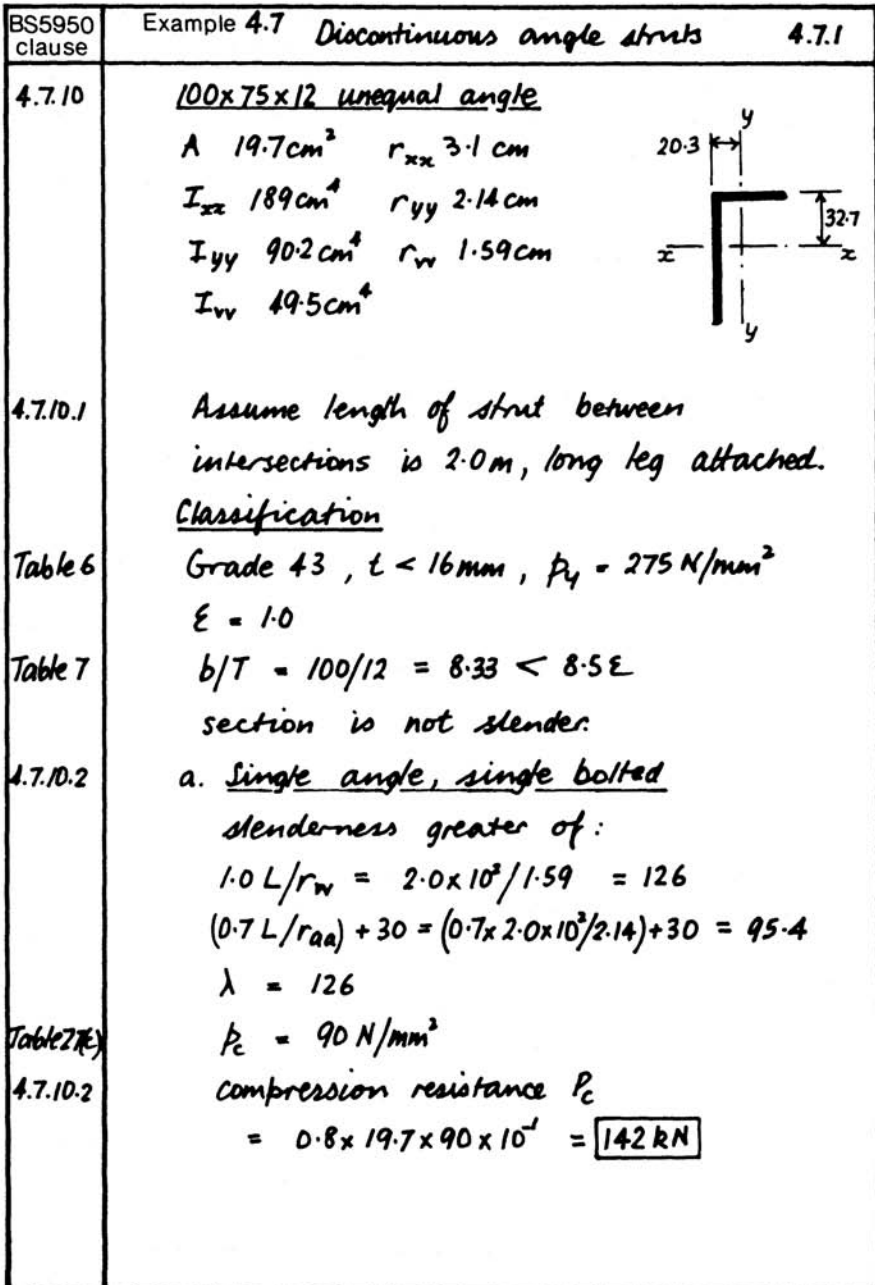 BS5950 clause
Example 4.7 Discontinuous angle struts 4.7.1
4.7.10 100x75x12 unequal angle
A 19.7cm² r_xx 3.1 cm
I_xx 189cm⁴ r_yy 2.14cm
I_yy 90.2cm⁴ r_vv 1.59cm
I_vv 49.5cm⁴
20.3
y
32.7
x x
y
4.7.10.1 Assume length of strut between
intersections is 2.0m, long leg attached.
Classification
Table 6 Grade 43, t < 16mm, p_y = 275 N/mm²
ε = 1.0
Table 7 b/T = 100/12 = 8.33 < 8.5ε
section is not slender.
4.7.10.2 a. Single angle, single bolted
slenderness greater of:
1.0 L/r_vv = 2.0x10²/1.59 = 126
(0.7 L/r_aa) + 30 = (0.7x 2.0x10²/2.14)+30 = 95.4
λ = 126
Table27(c) p_c = 90 N/mm²
4.7.10.2 compression resistance P_c
= 0.8x 19.7x 90 x 10⁻¹ = 142 kN